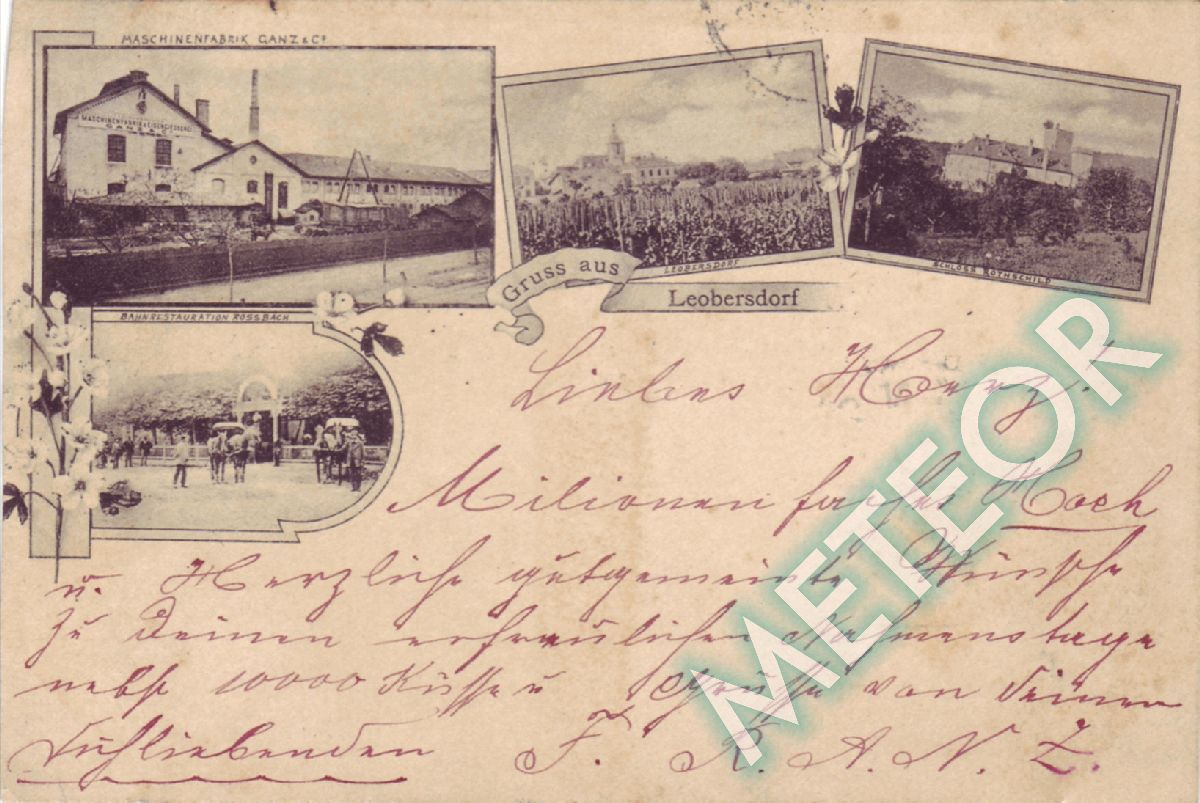 MASCHINENFABRIK GANZ & Co
MASCHINENFABRIK & EISENGIESSEREI
GANZ & Co
LEOBERSDORF
SCHLOSS ROTHSCHILD
Gruss aus
Leobersdorf
BAHNRESTAURATION ROSSBACH
Liebes Herz!
Milionen faches Hoch
u. Herzliche gutgemeinte Wünsche
zu Deinen erfreulichen Nahmenstage
nebst 10000 Küsse u Grüsse von Deinen
Dichliebenden F. R. A. N. Z.
METEOR